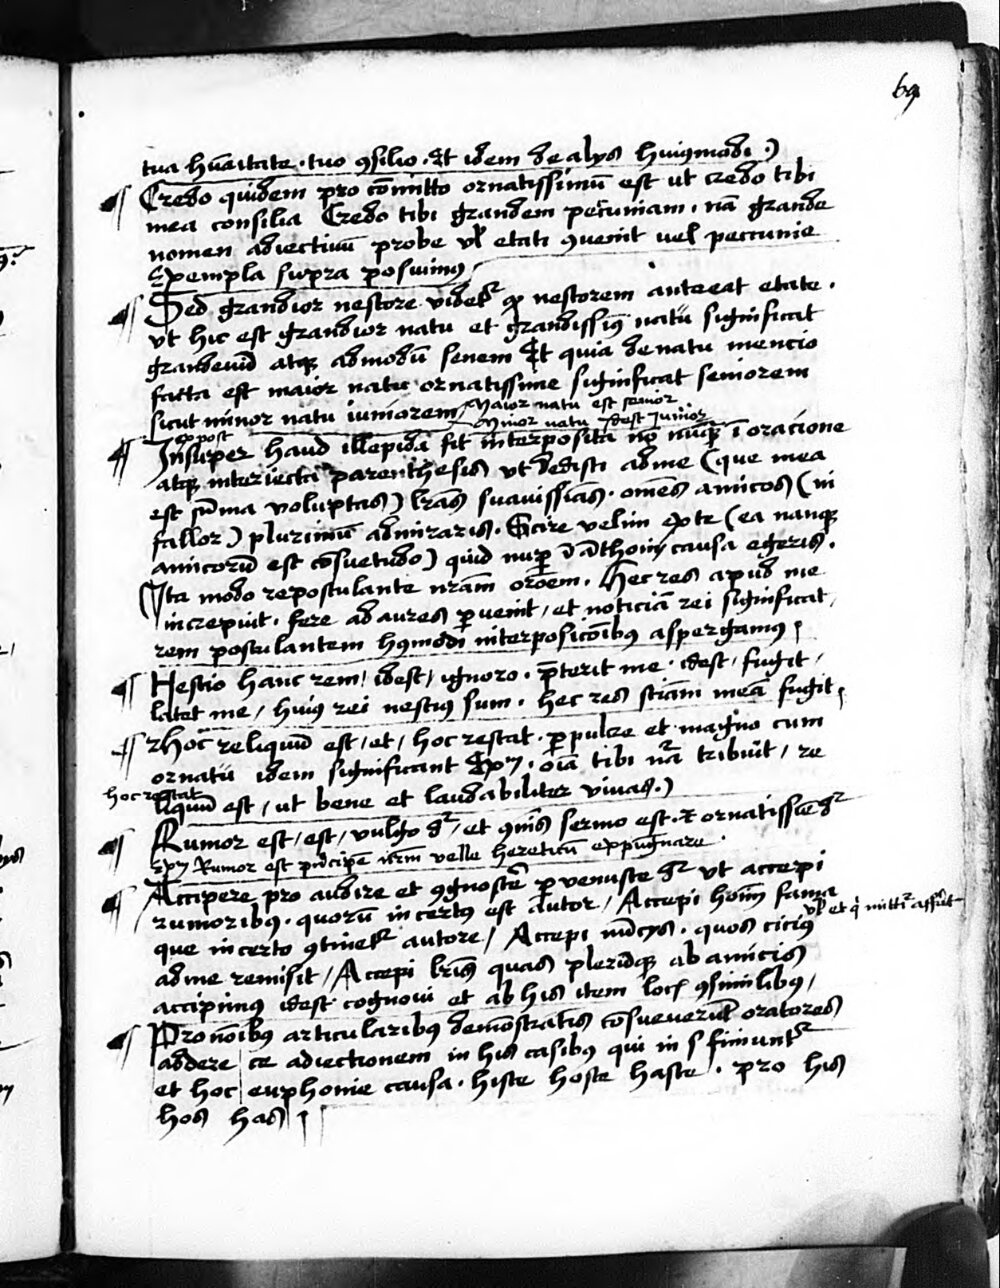 69
tua hūanitate · tuo ꝯsilio · Et idem de alijs huiꝯmodi ·)
¶ Credo quidem pro cōmitto ornatissimū est ut credo tibi
mea consilia Credo tibi grandem pecuniam · nā grande
nomen adiectiuū probe ul̄ etati ꝯuenit uel peccunie
Exempla supra posuimꝯ
¶ Sed grandior nestore uidetᷣ qꝫ nestorem anteeat etate ·
vt hic est grandior natu et grandissimꝯ natu significat
grandeuū atqꝫ admodū senem Et quia de natu mencio
facta est maior natu ornatissime significat seniorem
sicut minor natu iuniorem / Maior natu est senior
Minor natu idest Iunior
expost
¶ Insuper haud illepida fit interposita nō nūqꝫ ī oracione
atqꝫ interiecta parenthesis vt dedisti ad me (que mea
est sūma voluptas) lr̄as suauissimas · om̄es amicos (ni
fallor) plurimū admiraris · Scire velim ex te (ea nanqꝫ
amicorū est cōsuetudo) quid nuꝑ ī āthonij causa egeris ·
(Ita modo repostulante nr̄am or̄oem · Hec res apud me
increpuit · fere ad aures ꝑuenit / et noticiā rei significat /
rem postulantem hꝯmodi interposicōibꝯ aspergamꝯ
¶ Nescio hanc rem / idest / ignoro · p̄terit me · idest / fugit /
latet me / huiꝯ rei nesciꝯ sum · hec res sciām meā fugit
¶ Hoc reliquū est / et / hoc restat · ꝑpulcre et magno cum
ornatu idem significant Exᵐ · oīa tibi nā tribuit / re
hoc restat
liquū est / ut bene et laudabiliter viuas ·)
¶ Rumor est / est / vulgo dᷣ / et ꝯīs sermo est · ⁊ ornatissīe dᷣ
Exᵐ Rumor est pīcipē nr̄m velle hereticū expugnare ·
¶ Accipere pro audire et ꝯgnoscēe ꝑvenuste dᷣ vt accepi
rumoribꝯ · quorū incertꝯ est autor / Accepi hoīm fama
vl̄ et q̄ mittᷣ assūt
que incerto ꝯtinetᷣ autore / Accepi nūcijs · quos ciciꝯ
ad me remisit / Accepi lr̄is quas plerūqꝫ ab amicis
accipimꝯ idest cognoui et ab his item locꝭ ꝯsimilibꝯ /
¶ Pronōibꝯ articularibꝯ demōstratis cōsueuerūt oratores
addere ce adiectionem in his casibꝯ qui in s finiuntᷣ
et hoc euphonie causa · hisce hosce hasce · pro his
hos has